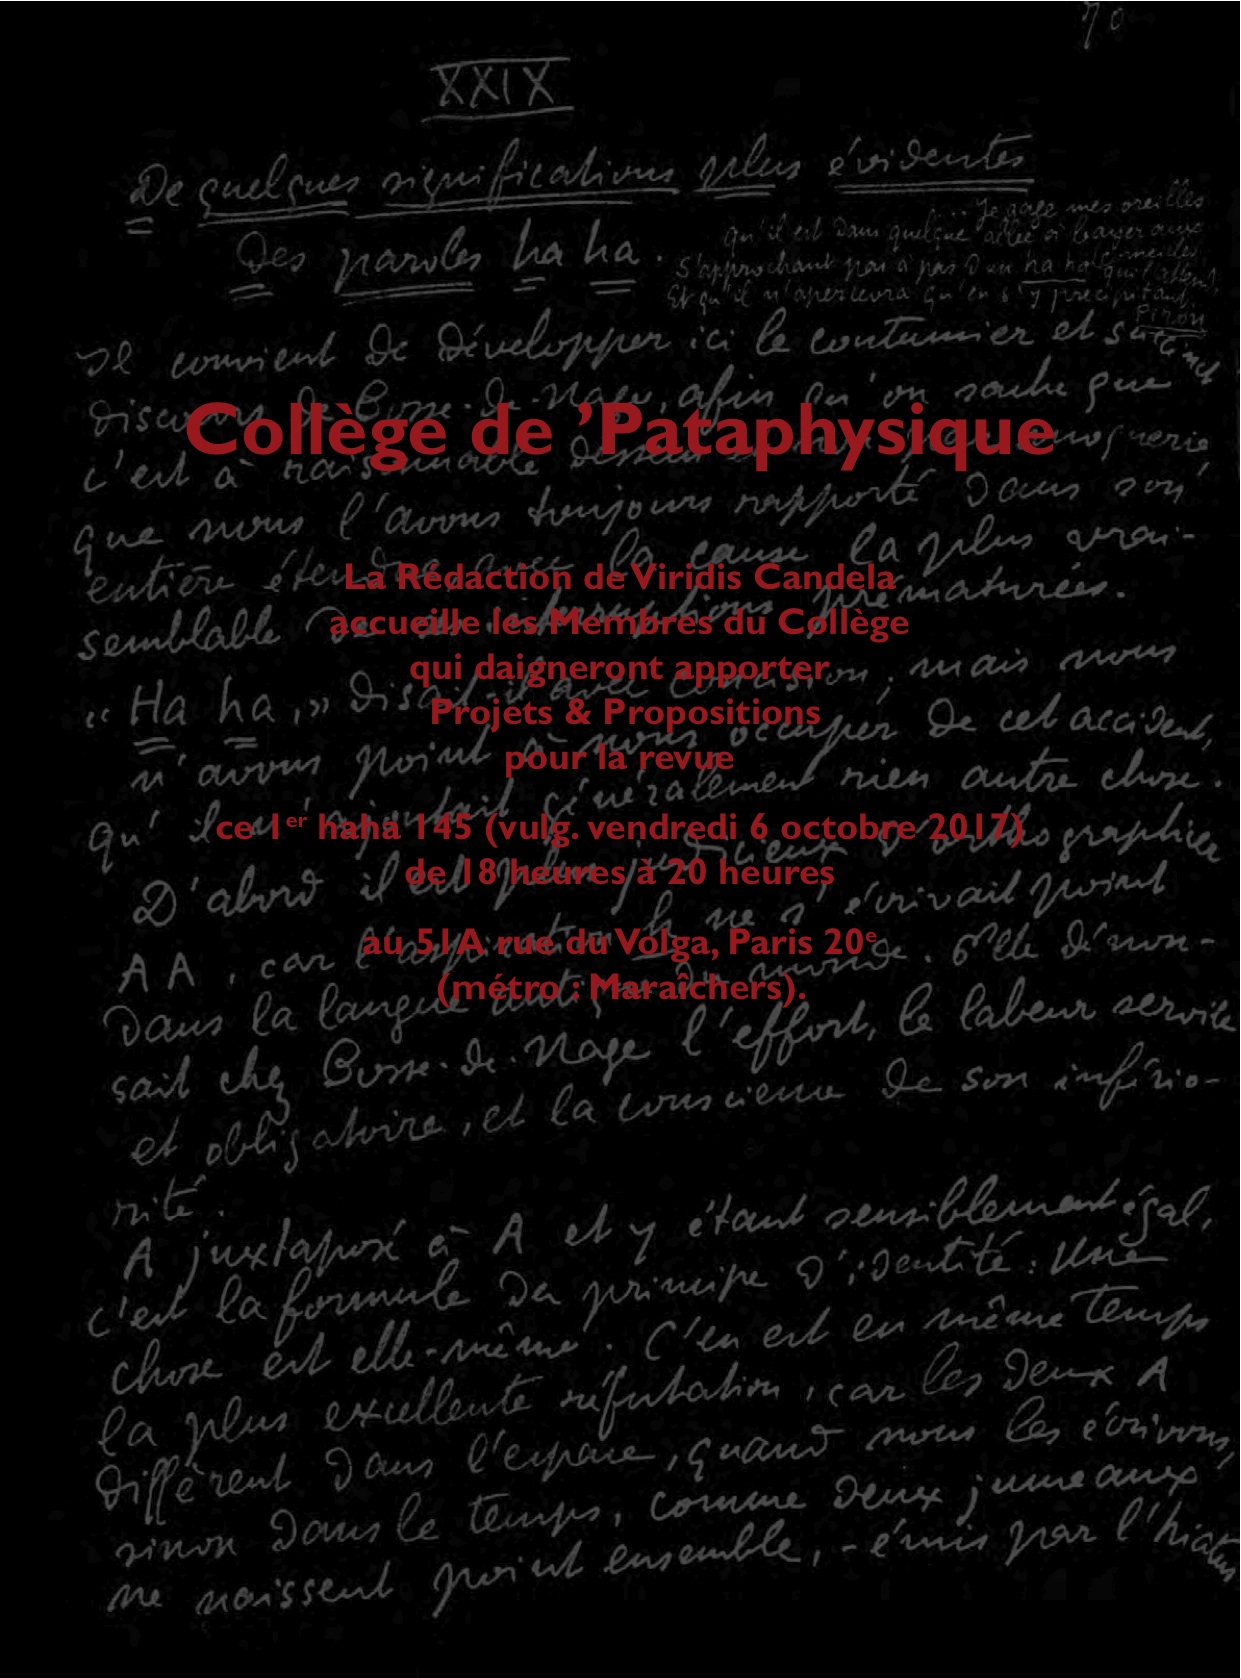 70
XXIX
De quelques significations plus évidentes
Des paroles ha ha.
... Je gage mes oreilles
Qu'il est dans quelque allée à bayer aux
corneilles
S'approchant pas à pas d'un ha ha qui l'attend,
Et qu'il n'apercevra qu'en s'y précipitant.
Piron
Il convient de développer ici le coutumier et succinct
discours de Bosse-de-Nage, afin qu'on sache que
Collège de ’Pataphysique
c'est à raisonnable dessein et non par moquerie
que nous l'avons toujours rapporté dans son
entière étendue, avec la cause la plus vrai-
La Rédaction de Viridis Candela
semblable de ses interruptions prématurées.
accueille les Membres du Collège
qui daigneront apporter
« Ha ha, » disait-il avec concision ; mais nous
Projets & Propositions
n'avons point à nous occuper de cet accident,
pour la revue
qu'il n'ajoutait généralement rien autre chose.
ce 1er haha 145 (vulg. vendredi 6 octobre 2017)
de 18 heures à 20 heures
D'abord il est plus judicieux d'orthographier
AA, car l'aspiration h ne s'écrivait point
au 51A rue du Volga, Paris 20e
dans la langue antique du monde. Elle dénon-
(métro : Maraîchers).
sait chez Bosse-de-Nage l'effort, le labeur servile
et obligatoire, et la conscience de son infério-
rité.
A juxtaposé à A et y étant sensiblement égal,
c'est la formule du principe d'identité : Une
chose est elle-même. C'en est en même temps
la plus excellente réfutation, car les deux A
diffèrent dans l'espace, quand nous les écrivons,
sinon dans le temps, comme deux jumeaux
ne naissent point ensemble, - émis par l'hiatus